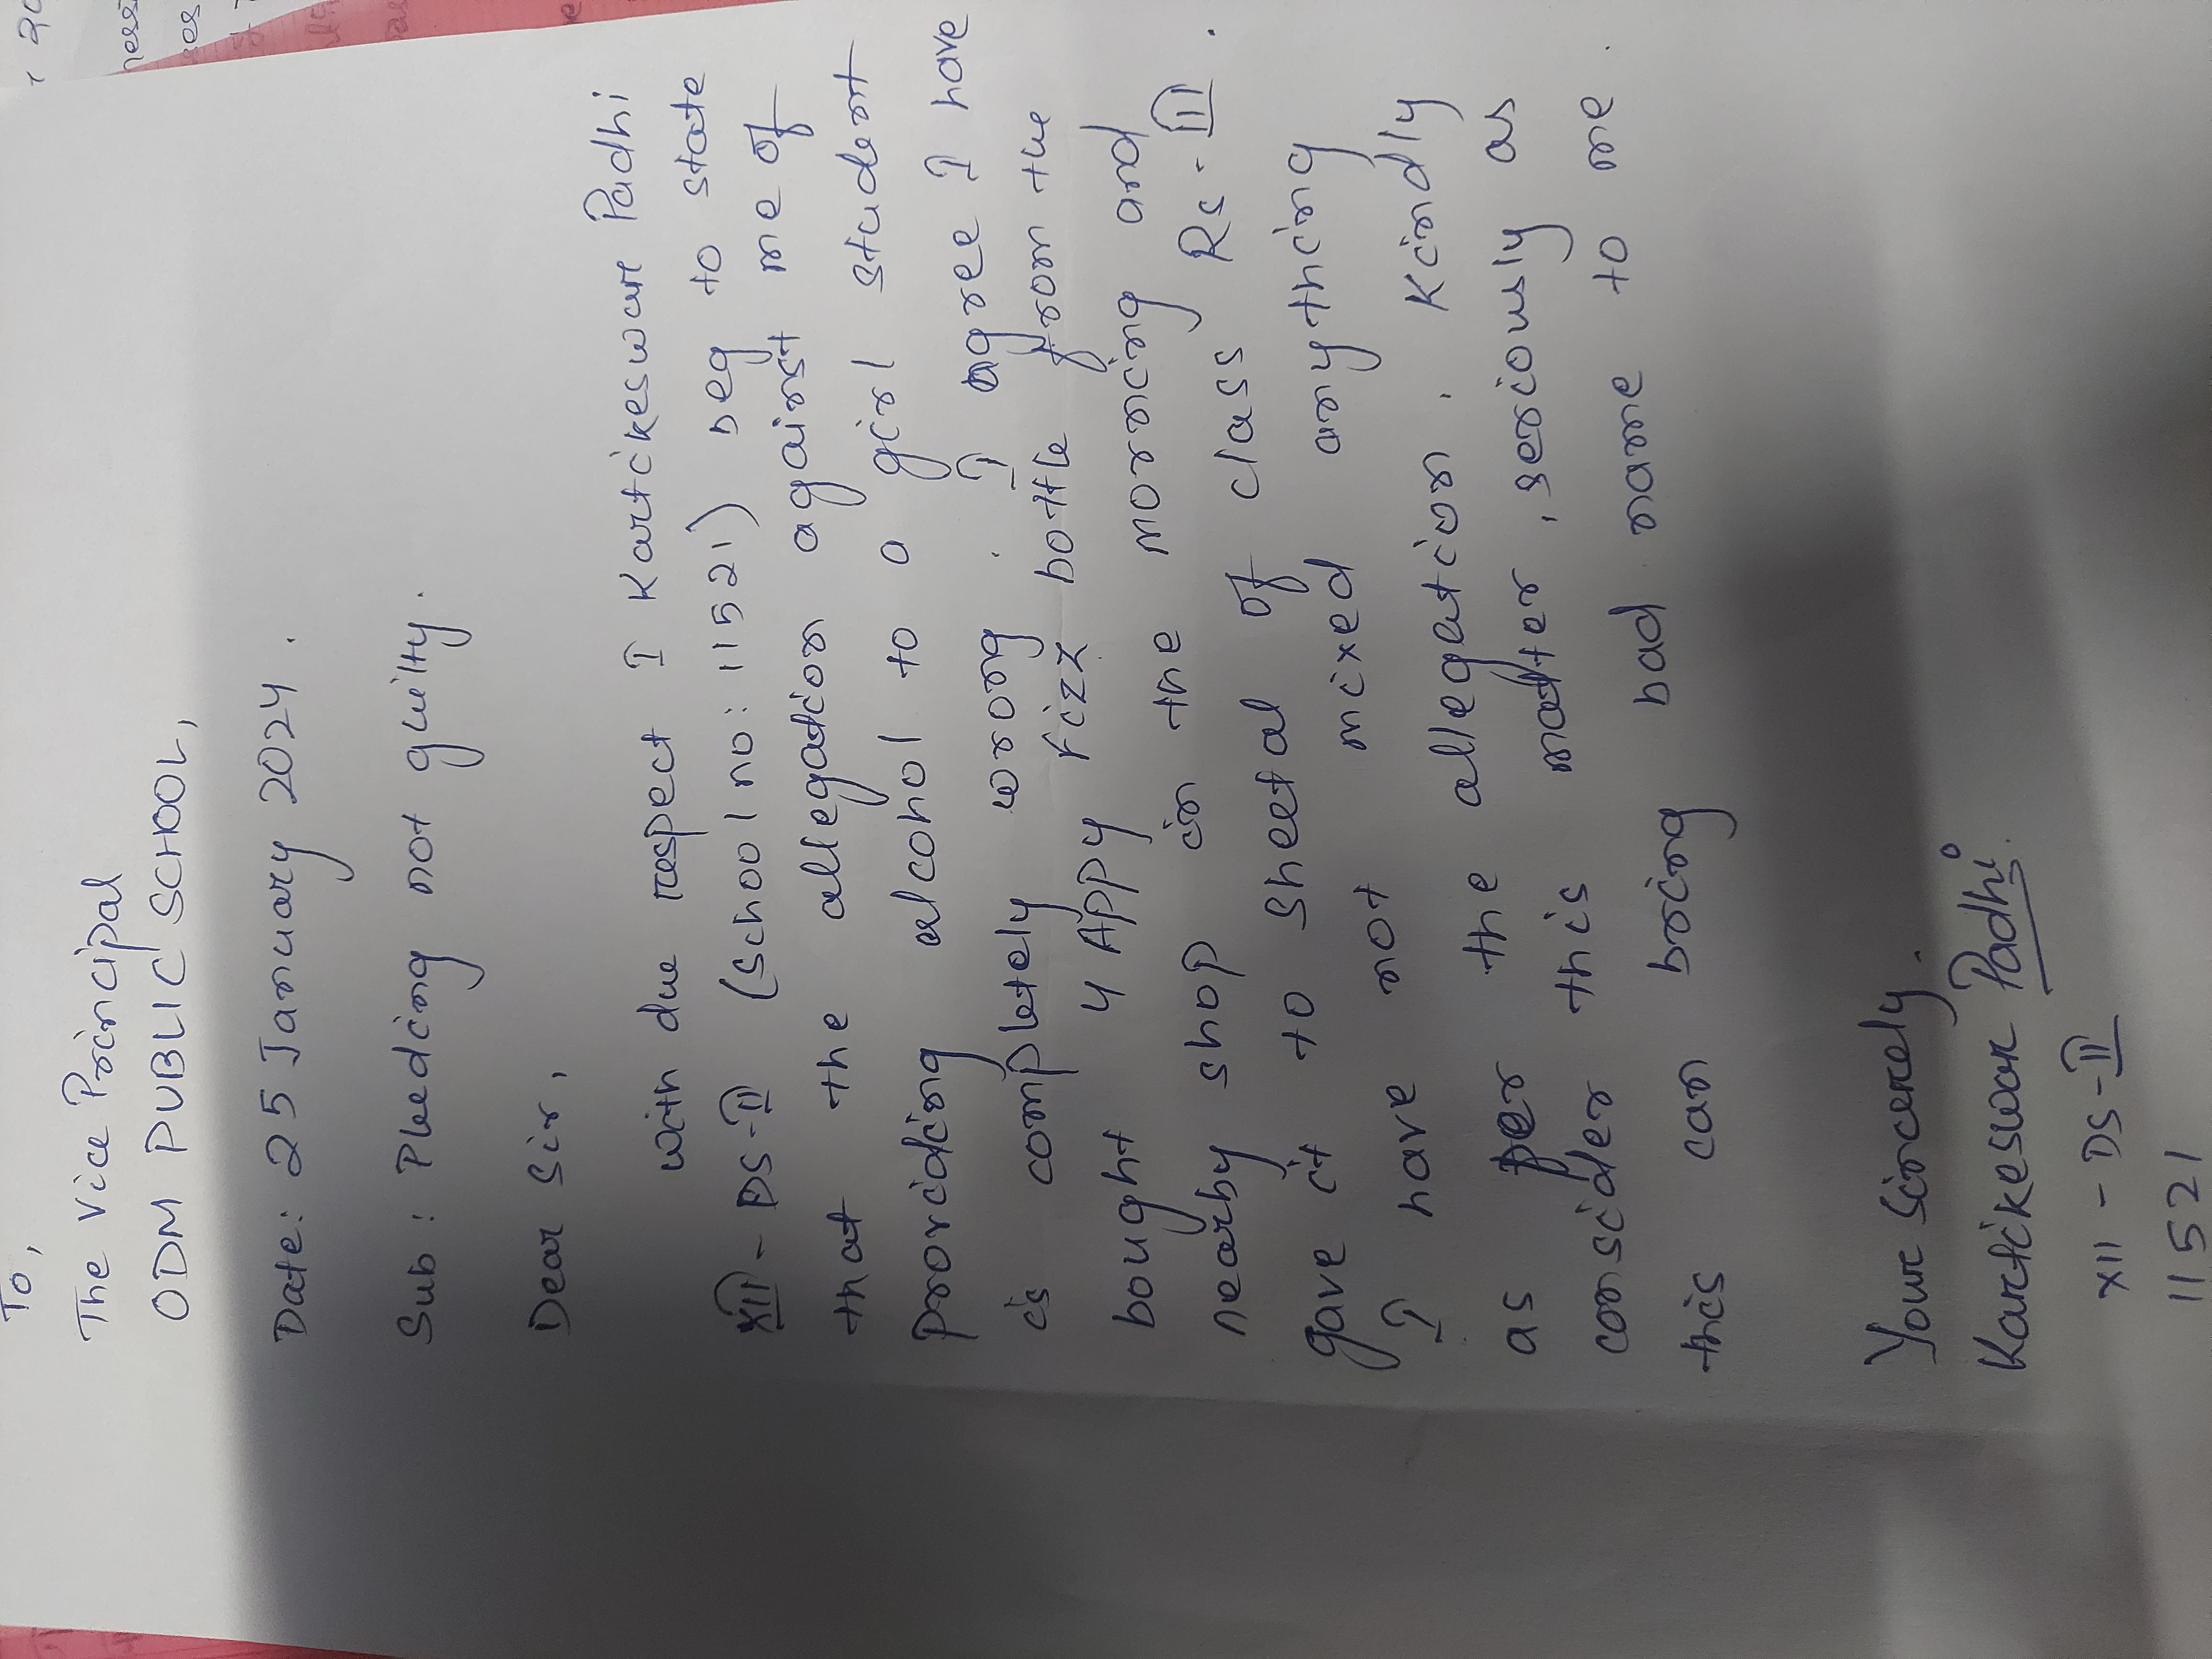 To,
The Vice Principal
ODM PUBLIC SCHOOL,
Date: 25 January 2024.
Sub: Pleading not guilty.
Dear Sir,
with due respect I Kartikeswar Padhi
XII-DS-II (School no: 11521) beg to state
that the allegation against me of
providing alcohol to a girl student
is completely wrong. I agree I have
bought 4 APPY fizz bottle from the
nearby shop in the morning and
gave it to sheetal of class RS-III.
I have not mixed anything
as per the allegation. Kindly
consider this matter, seriously as
this can bring bad name to me.
Your Sincerely.
Kartikeswar Padhi.
XII-DS-II
11521